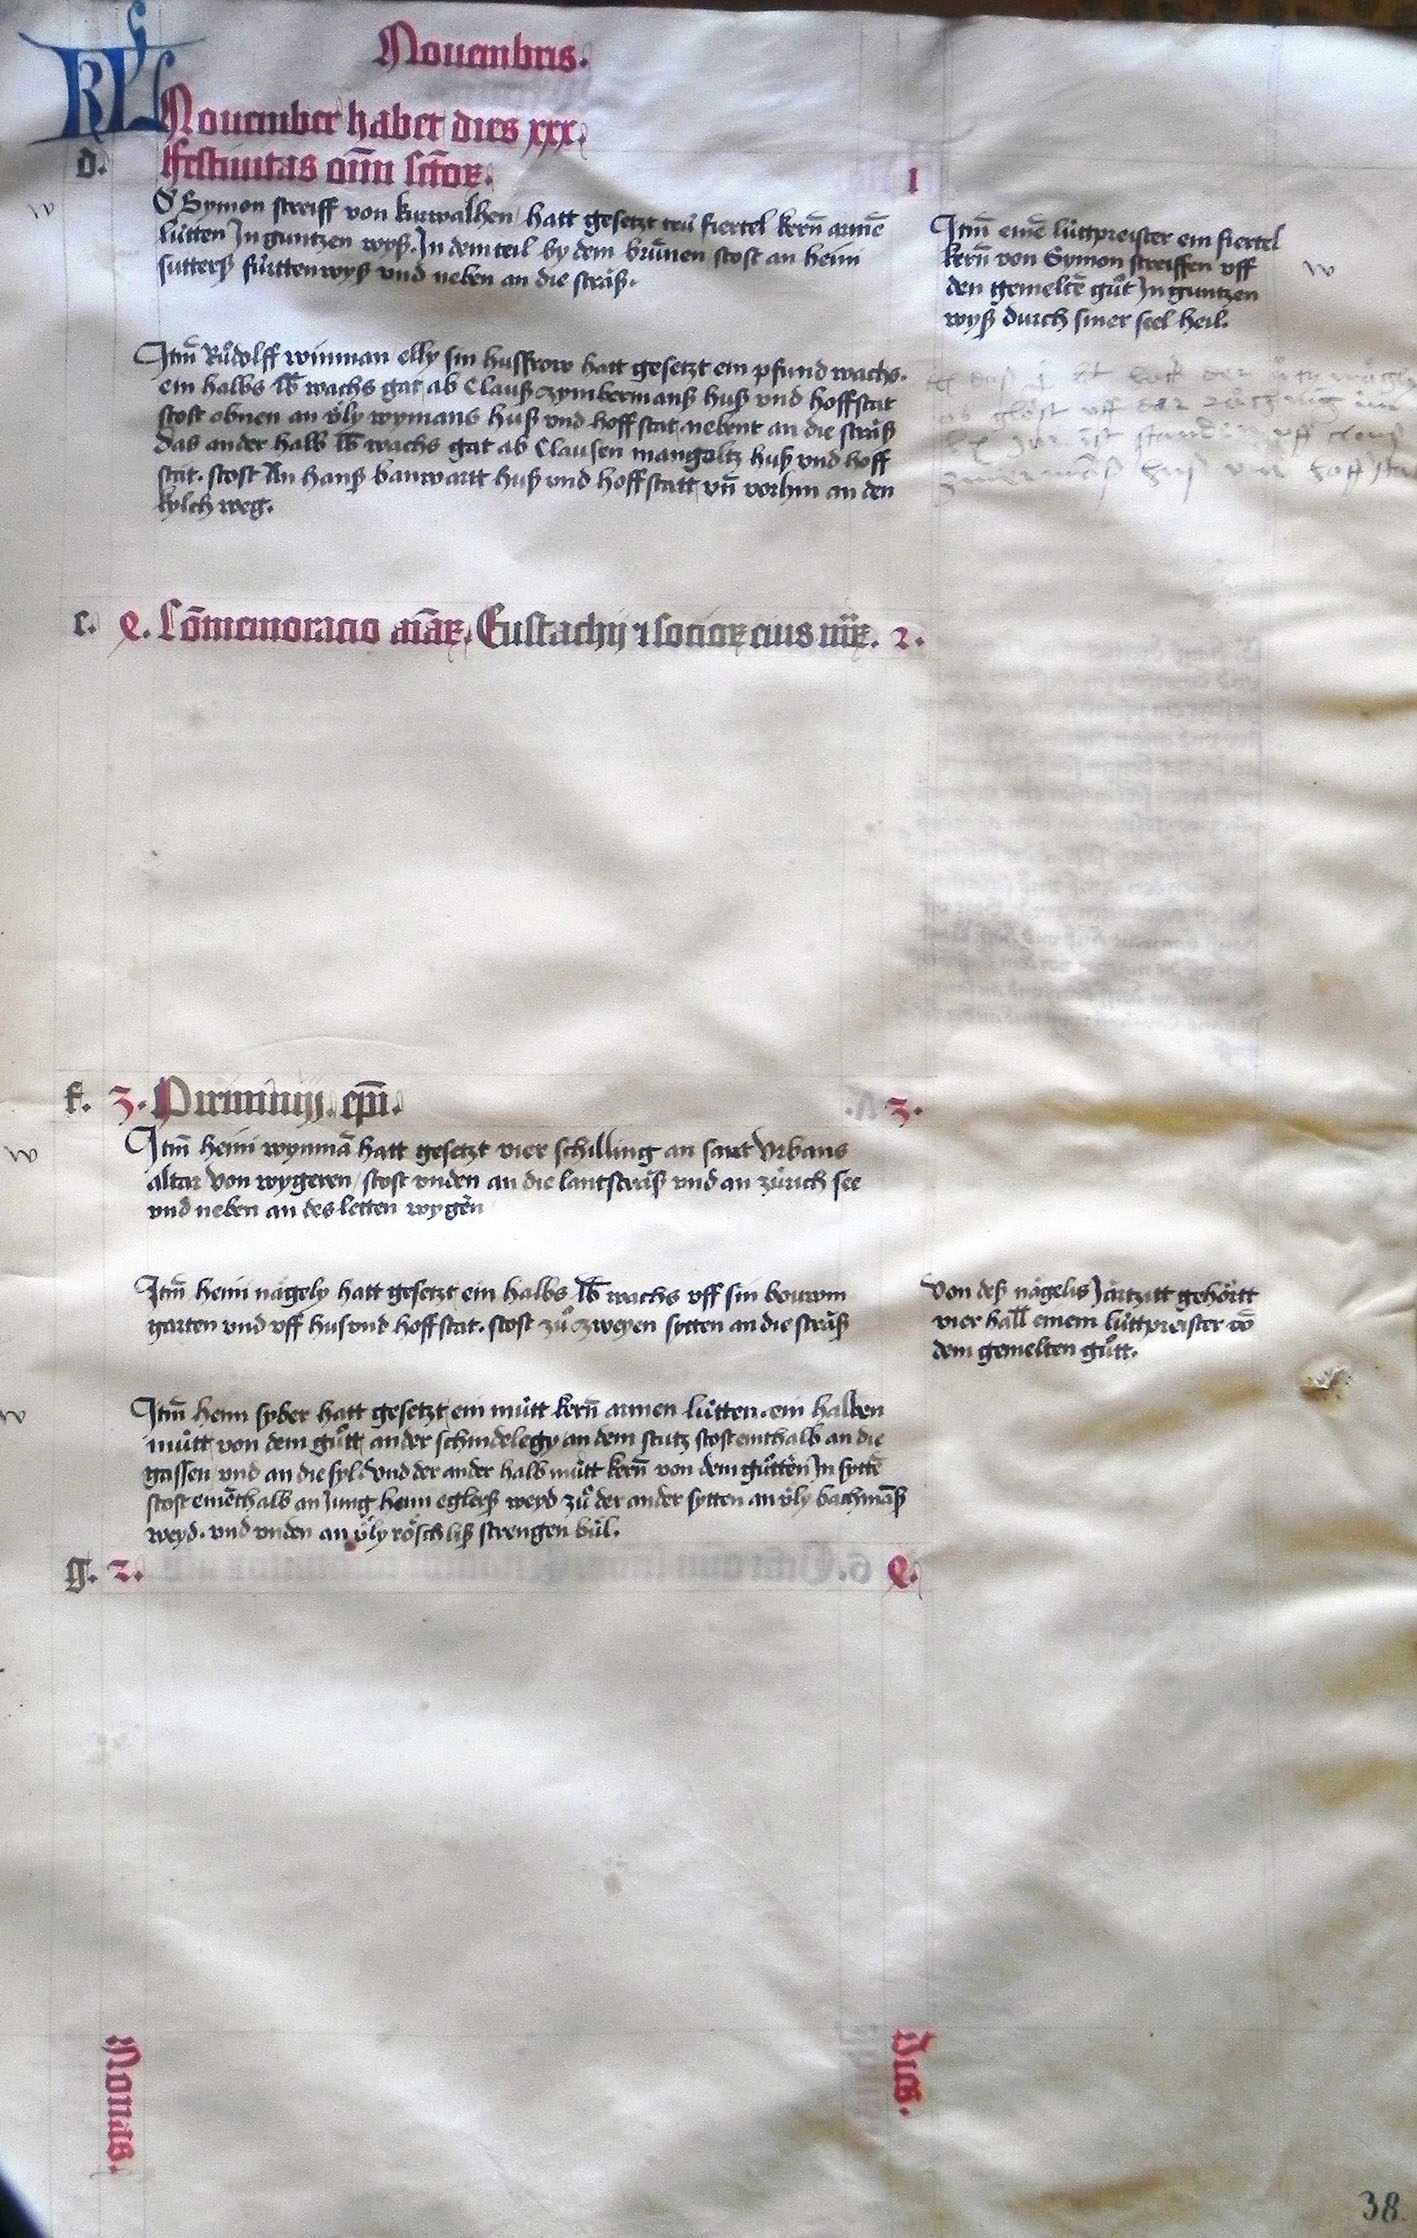 Nouembris.
KL
Nouember habet dies xxx.
d. Festiuitas om̄i sc̄tor. 1
O Symon streiff von kurwalhen hatt gesetzt trü fiertel kern̄ armē
lütten Jn guntzen wyß. Jn dem teil by dem brūnen stost an heini
sutterß fürtten wyß vnd neben an die strāß.
Jtm̄ einē lüttpreister ein fiertel
kern̄ von Symon streiffen vff
den gemeltē gůt Jn guntzen
wyß durch siner seel heil.
w
w
Jtm̄ Růdolff winman elly sin husfrow hatt gesetzt ein pfund wachs.
ein halbs lb wachs gat ab Clauß zymbermanß huß vnd hoffstat
stost obnen an ůly wymans huß vnd hoffstat nebent an die strāß
das ander halb lb wachs gat ab Clausen mangoltz huß vnd hoff
stat. stost An hanß banwartt huß vnd hoffstatt vn̄ vorhin an den
kylch weg.
e. 4. Cōmemoracio aīar. Eustachij et socior eius mr̄. 2.
f. 3. Pirminij. ep̄i. 3.
w
Jtm̄ heini wynmā hatt gesetzt vier schilling an sant Vrbans
altar von wygeren / stost vnden an die lantstrāß vnd an zürich see
vnd neben an des letten wygēn
Jtm̄ heini nägely hatt gesetzt ein halbs lb wachs vff sin bouwm
garten vnd vff hus vnd hoffstat. stost zů zweyen sytten an die strāß
Von deß nägelis Jartzitt gehörtt
vier hall einem lüttpreister vō
dem gemelten gůtt.
w
Jtm̄ heini syber hatt gesetzt ein mütt kern̄ armen lütten. ein halben
mütt von dem gůtt an der schindelegy an dem stutz stost einthalb an die
gassen vnd an die syl. Vnd der ander halb mütt kern̄ von dem gůttēn Jn syttē
stost einēthalb an Jung heini eglerß weyd zů der ander sytten an ůly bachmāß
weyd. vnd vnden an ůly röschlisß strengen bül.
g. 2. 4.
Nonas.
Dies.
38.